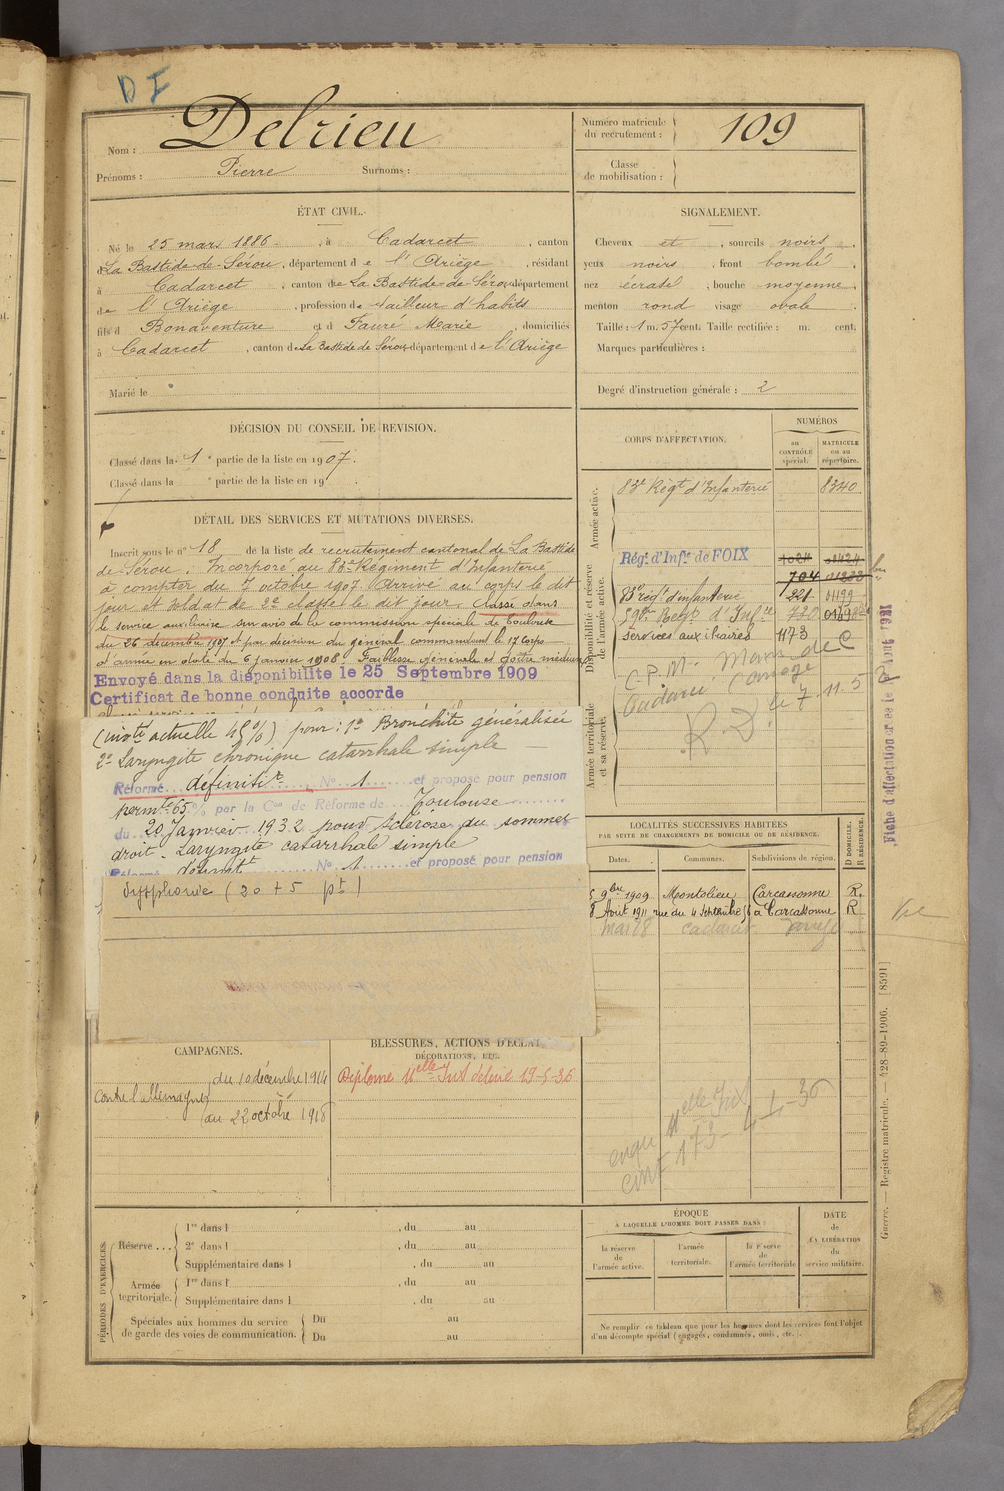 D I
Nom : Delrieu
Prénoms : Pierre Surnoms :
Numéro matricule du recrutement : 109
Classe de mobilisation :
ÉTAT CIVIL.
Né le 25 mars 1886 , à Cadarcet , canton
de La Bastide-de-Sérou, département de l'Ariège , résidant
à Cadarcet , canton de La Bastide-de-Sérou département
de l'Ariège , profession de tailleur d'habits
fils d Bonaventure et d Fauré Marie , domiciliés
à Cadarcet , canton de La Bastide de Sérou département de l'Ariège
Marié le
SIGNALEMENT.
Cheveux et , sourcils noirs
yeux noirs , front bombé
nez écrasé , bouche moyenne
menton rond visage ovale
Taille : 1 m. 57 cent. Taille rectifiée : m. cent.
Marques particulières :
Degré d'instruction générale : 2
DÉCISION DU CONSEIL DE REVISION.
Classé dans la 1e partie de la liste en 1907.
Classé dans la e partie de la liste en 19
DÉTAIL DES SERVICES ET MUTATIONS DIVERSES.
Inscrit sous le n° 18 de la liste de recrutement cantonal de La Bastide
de-Sérou. Incorporé au 83e Régiment d'Infanterie
à compter du 7 octobre 1907. Arrivé au corps le dit
jour et soldat de 2e classe le dit jour. Classé dans
le service auxiliaire sur avis de la commission spéciale de Toulouse
du 26 décembre 1907 et par décision du général commandant le 17 Corps
d'armée en date du 6 janvier 1908. Faiblesse générale et goître médium
Envoyé dans la disponibilite le 25 Septembre 1909
Certificat de bonne conduite accorde
(invté actuelle 45%) pour : 1° Bronchite généralisée
2° Laryngite chronique catarrhale simple
Réformé définitift N° 1 et proposé pour pension
permte 65 % par la Con de Réforme de Toulouse
du 20 Janvier 1932 pour sclérose du sommet
droit. Laryngite catarrhale simple
Réformé définitt N° 1 et proposé pour pension
dysphonie (20 + 5 pt)
CORPS D'AFFECTATION.
NUMÉROS
au CONTRÔLE spécial.
MATRICULE ou au répertoire.
Armée active.
83e Régt d'Infanterie 8340
Disponibilité et réserve de l'armée active.
Régt d'Infie de FOIX 1024
704
83e régt d'infanterie 221 01199
59e Regt d'Infie 720
services auxiliaires 1173
C.P.M. Maison de C
Cadarcet Ariège
le 7 . 11. 5
R D
Armée territoriale et sa réserve.
Fiche d'affectation
LOCALITÉS SUCCESSIVES HABITÉES
PAR SUITE DE CHANGEMENTS DE DOMICILE OU DE RÉSIDENCE.
Dates. Communes. Subdivisions de région. D DOMICILE. R RÉSIDENCE.
5 9bre 1909 Montolieu Carcassonne R.
8 Août 1911 rue du 4 Septembre 56 à Carcassonne R
mai 28 Cadarcet Ariège
CAMPAGNES.
Contre l'allemagne du 10 décembre 1914
au 22 octobre 1918
BLESSURES, ACTIONS D'ÉCLAT,
DÉCORATIONS, ETC.
Diplome 11elle Just délivré 19-5-36
enqu 11elle Just
cont 173- 4-1-36
PÉRIODES D'EXERCICES.
Réserve .... 1re dans l , du au
2e dans l , du au
Supplémentaire dans l , du au
Armée territoriale. 1re dans l , du au
Supplémentaire dans l , du au
Spéciales aux hommes du service de garde des voies de communication. Du au
Du au
ÉPOQUE
À LAQUELLE L'HOMME DOIT PASSER DANS :
la réserve de l'armée active.
l'armée territoriale.
la réserve de l'armée territoriale
DATE de LA LIBÉRATION du service militaire.
Ne remplir ce tableau que pour les hommes dont les services font l'objet
d'un décompte spécial (engagés, condamnés, omis, etc.).
Guerre. — Registre matricule. — 428-89-1906. [8591]